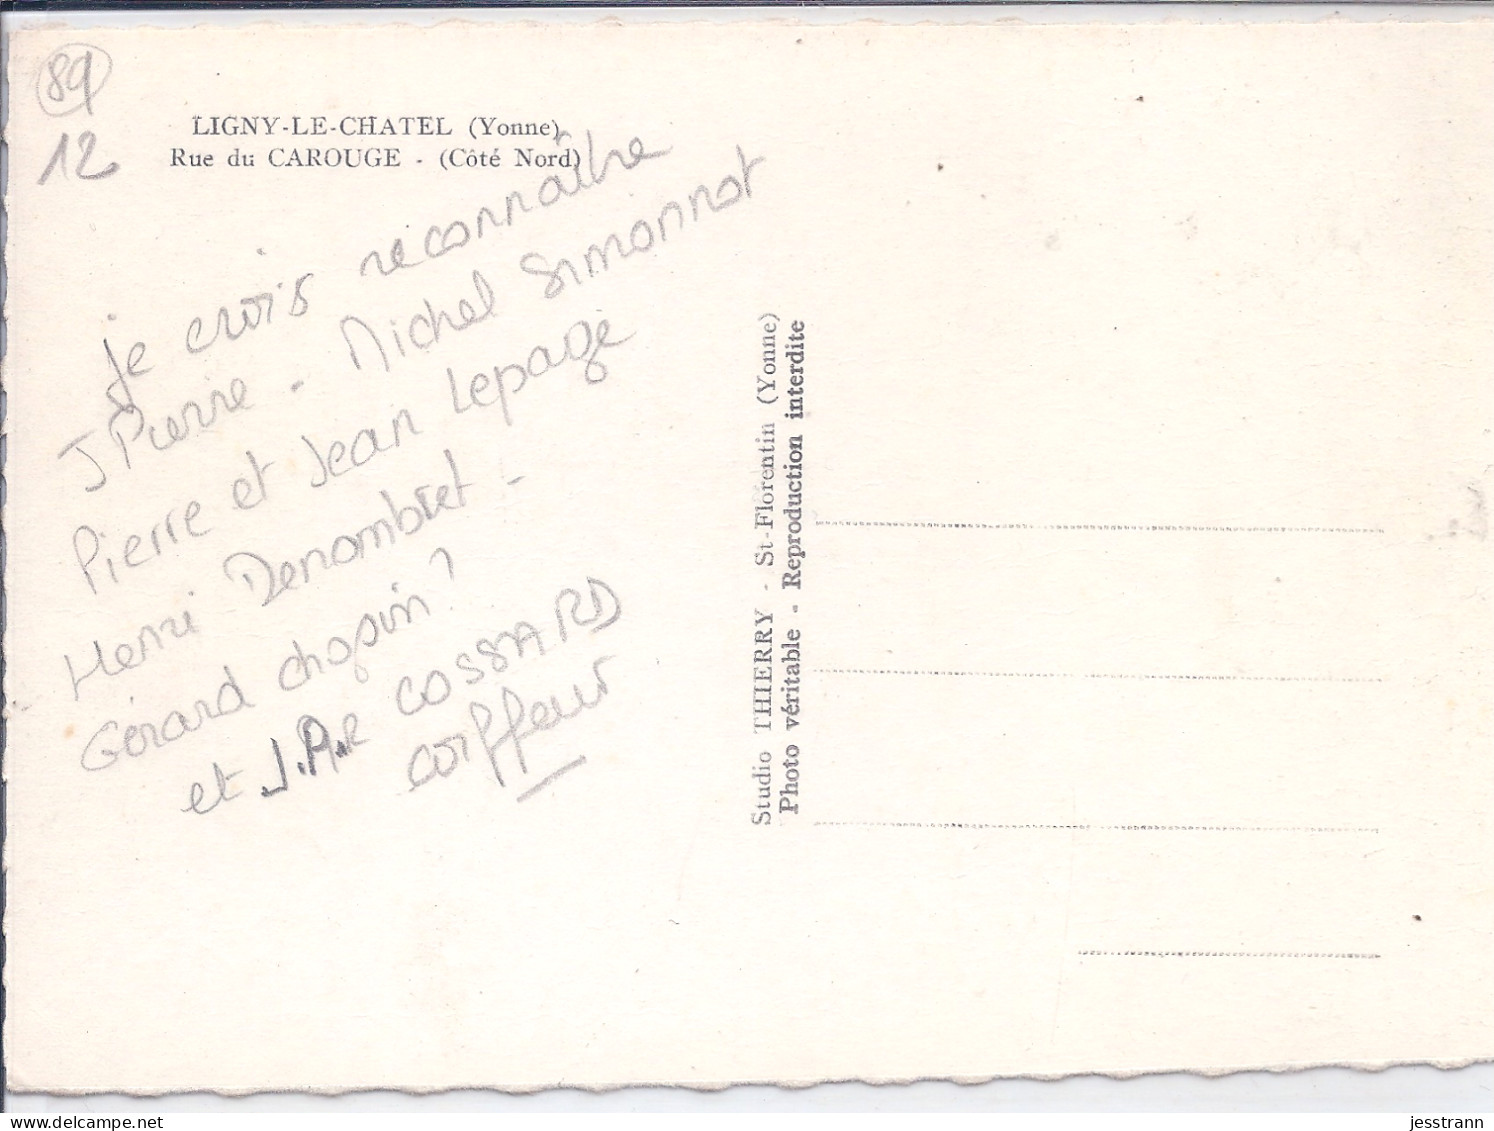 89
12
LIGNY-LE-CHATEL (Yonne)
Rue du CAROUGE - (Côté Nord)
je crois reconnaître
J Pierre - Michel Simonnot
Pierre et Jean Lepage
Henri Denombret -
Gérard chopin ?
et J. COSSARD
coiffeur
Studio THIERRY - St-Florentin (Yonne)
Photo véritable - Reproduction interdite
delcampe.net
jesstrann